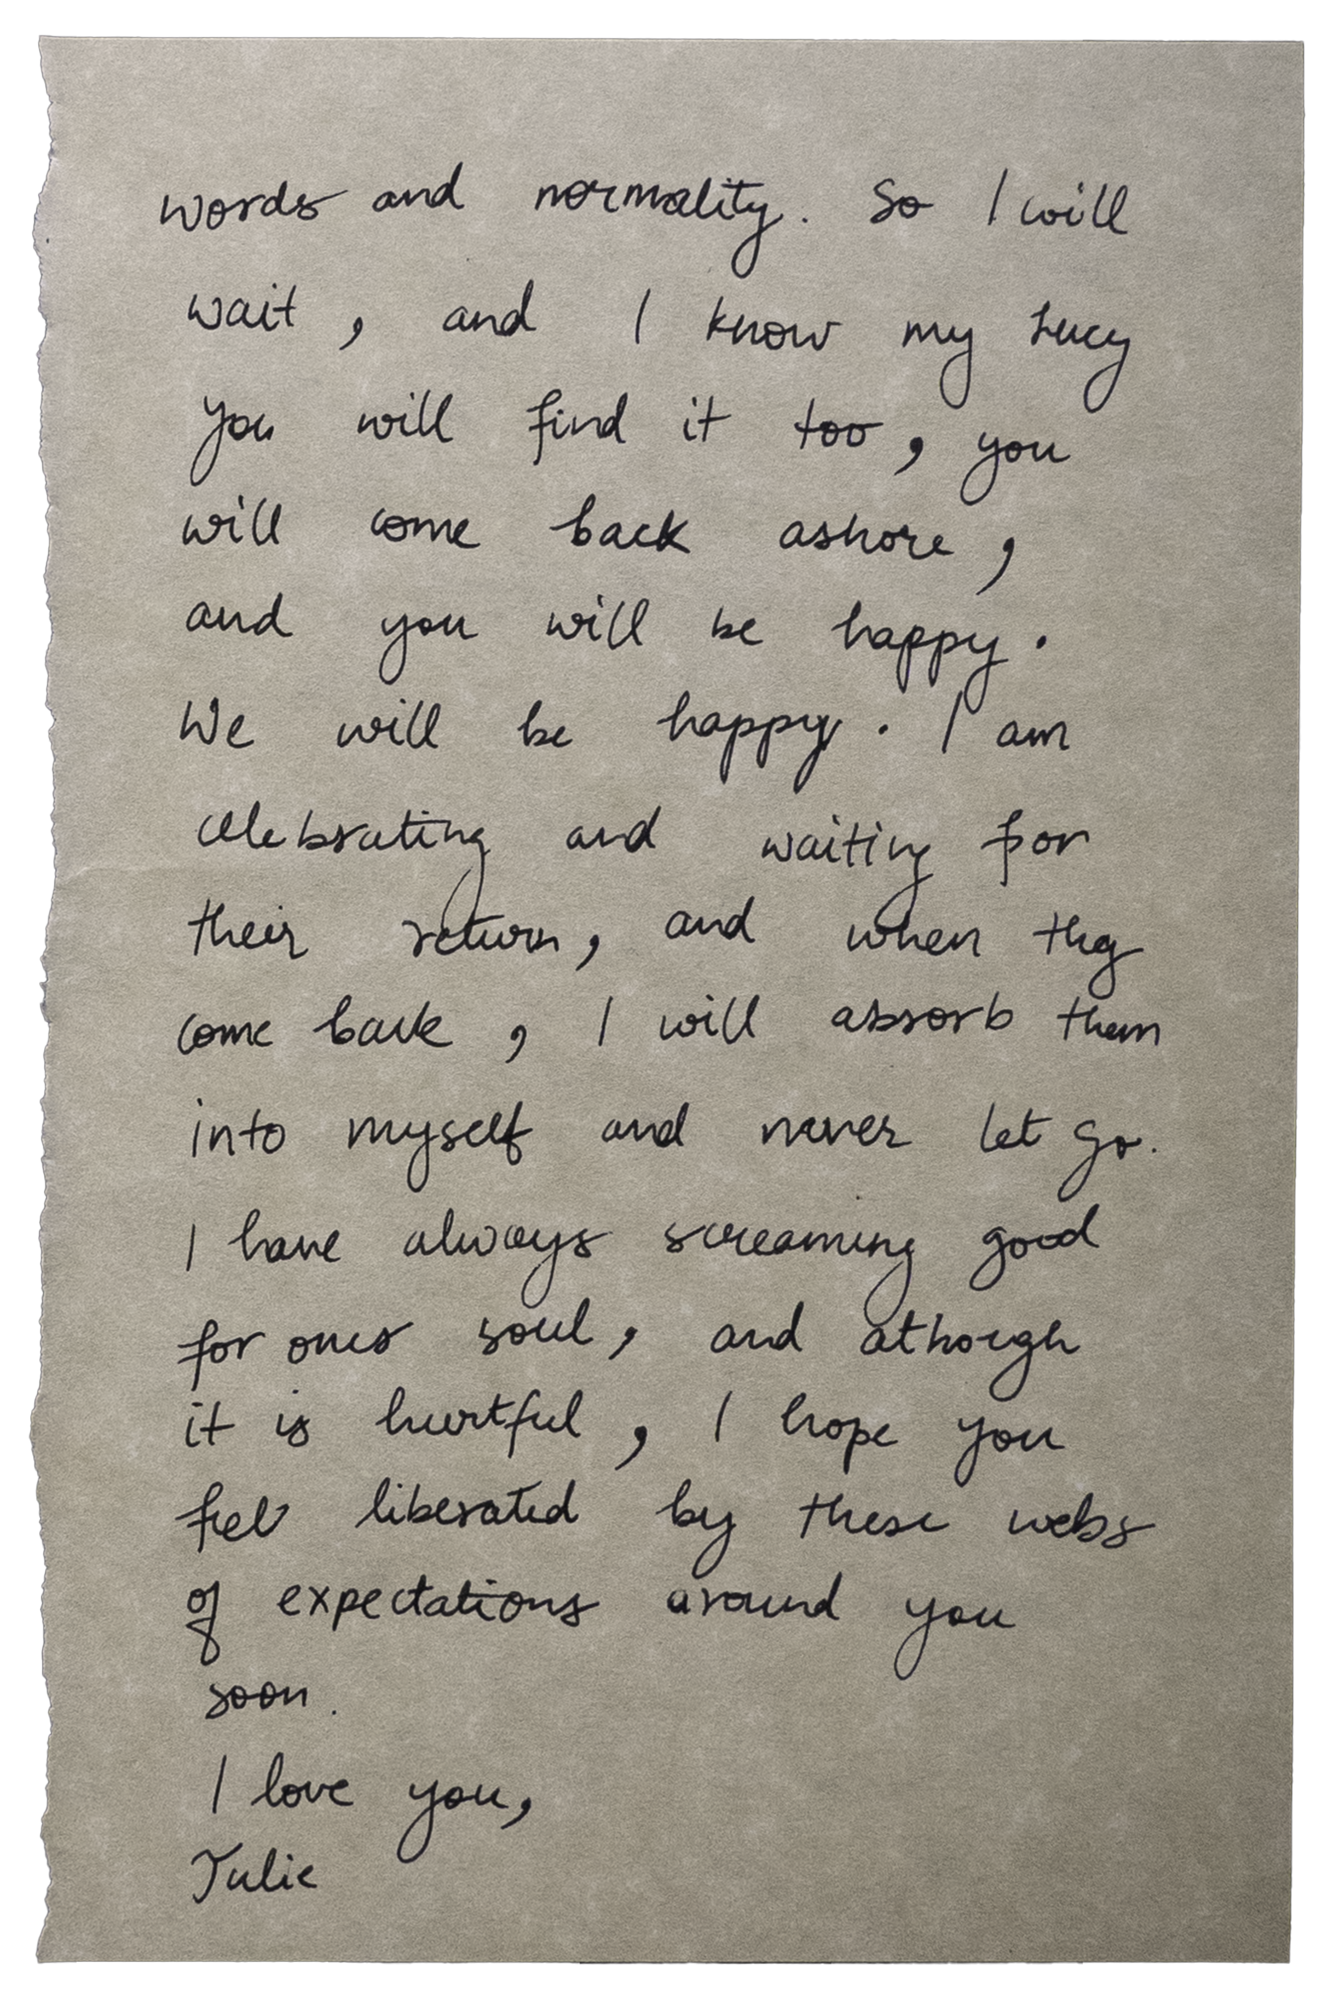 words and normality. So I will
wait, and I know my Lucy
you will find it too, you
will come back ashore,
and you will be happy.
We will be happy. I am
celebrating and waiting for
their return, and when they
come back, I will absorb them
into myself and never let go.
I have always screaming good
for ones soul, and athough
it is hurtful, I hope you
feel liberated by these webs
of expectations around you
soon.
I love you,
Julie